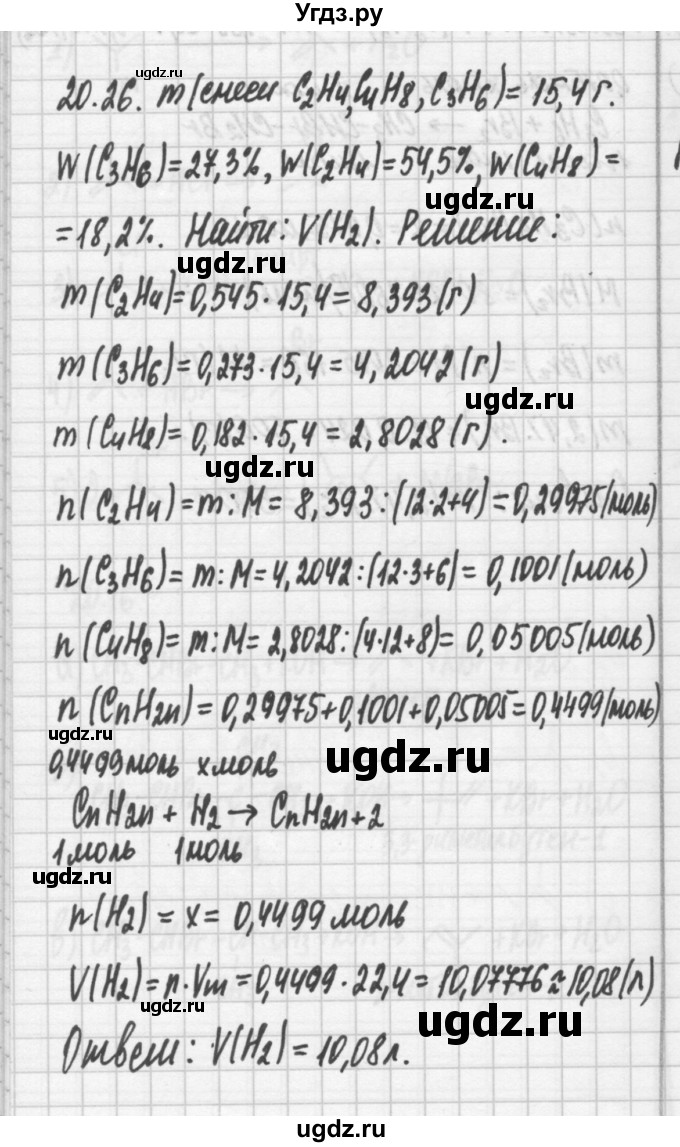 Угдз.ру
ugdz.ru
20.26. m(смеси C2H4,C4H8,C3H6)=15,4г.
W(C3H6)=27,3%, W(C2H4)=54,5%, W(C4H8)=
ugdz.ru
=18,2%. Найти: V(H2). Решение:
ugdz.ru
m(C2H4)=0,545·15,4=8,393(г)
m(C3H6)=0,273·15,4=4,2042(г)
ugdz.ru
m(C4H8)=0,182·15,4=2,8028(г).
ugdz.ru
n(C2H4)=m:M=8,393:(12·2+4)=0,29975(моль)
n(C3H6)=m:M=4,2042:(12·3+6)=0,1001(моль)
n(C4H8)=m:M=2,8028:(4·12+8)=0,05005(моль)
n(CnH2n)=0,29975+0,1001+0,05005=0,4499(моль)
ugdz.ru
0,4499моль xмоль
ugdz.ru
CnH2n+H2→CnH2n+2
1моль 1моль
ugdz.ru
n(H2)=x=0,4499моль
V(H2)=n·Vm=0,4499·22,4=10,07776≈10,08(л)
ugdz.ru
ugdz.ru
Ответ: V(H2)=10,08л.
ugdz.ru